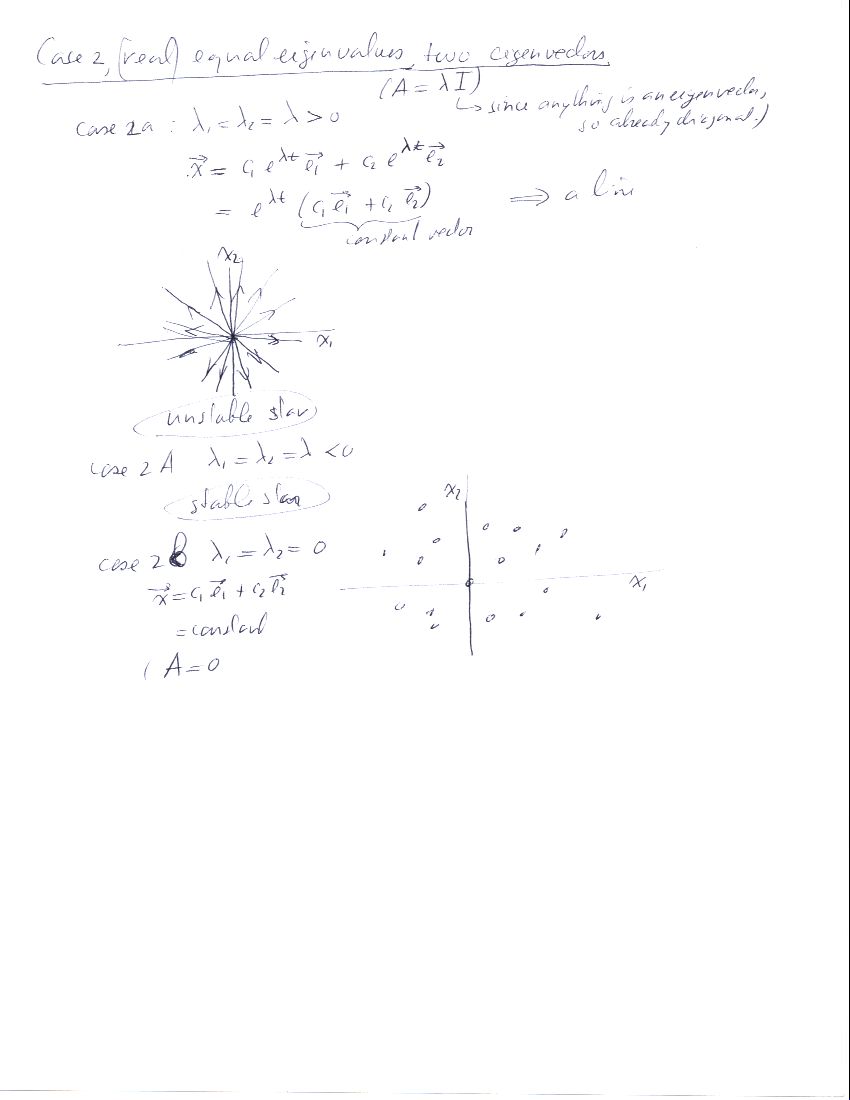 Case 2, (real) equal eigenvalues, two eigenvectors.
(A = λI)
↳ since anything is an eigenvector,
so already diagonal.)
Case 2a : λ₁ = λ₂ = λ > 0
x⃗ = c₁ e^{λt} e⃗₁ + c₂ e^{λt} e⃗₂
= e^{λt} (c₁ e⃗₁ + c₂ e⃗₂) ⟹ a line
constant vector
x₂
x₁
unstable star
Case 2A λ₁ = λ₂ = λ < 0
stable star
x₂
Case 2B λ₁ = λ₂ = 0
x₁
x⃗ = c₁ e⃗₁ + c₂ e⃗₂
= constant
( A = 0